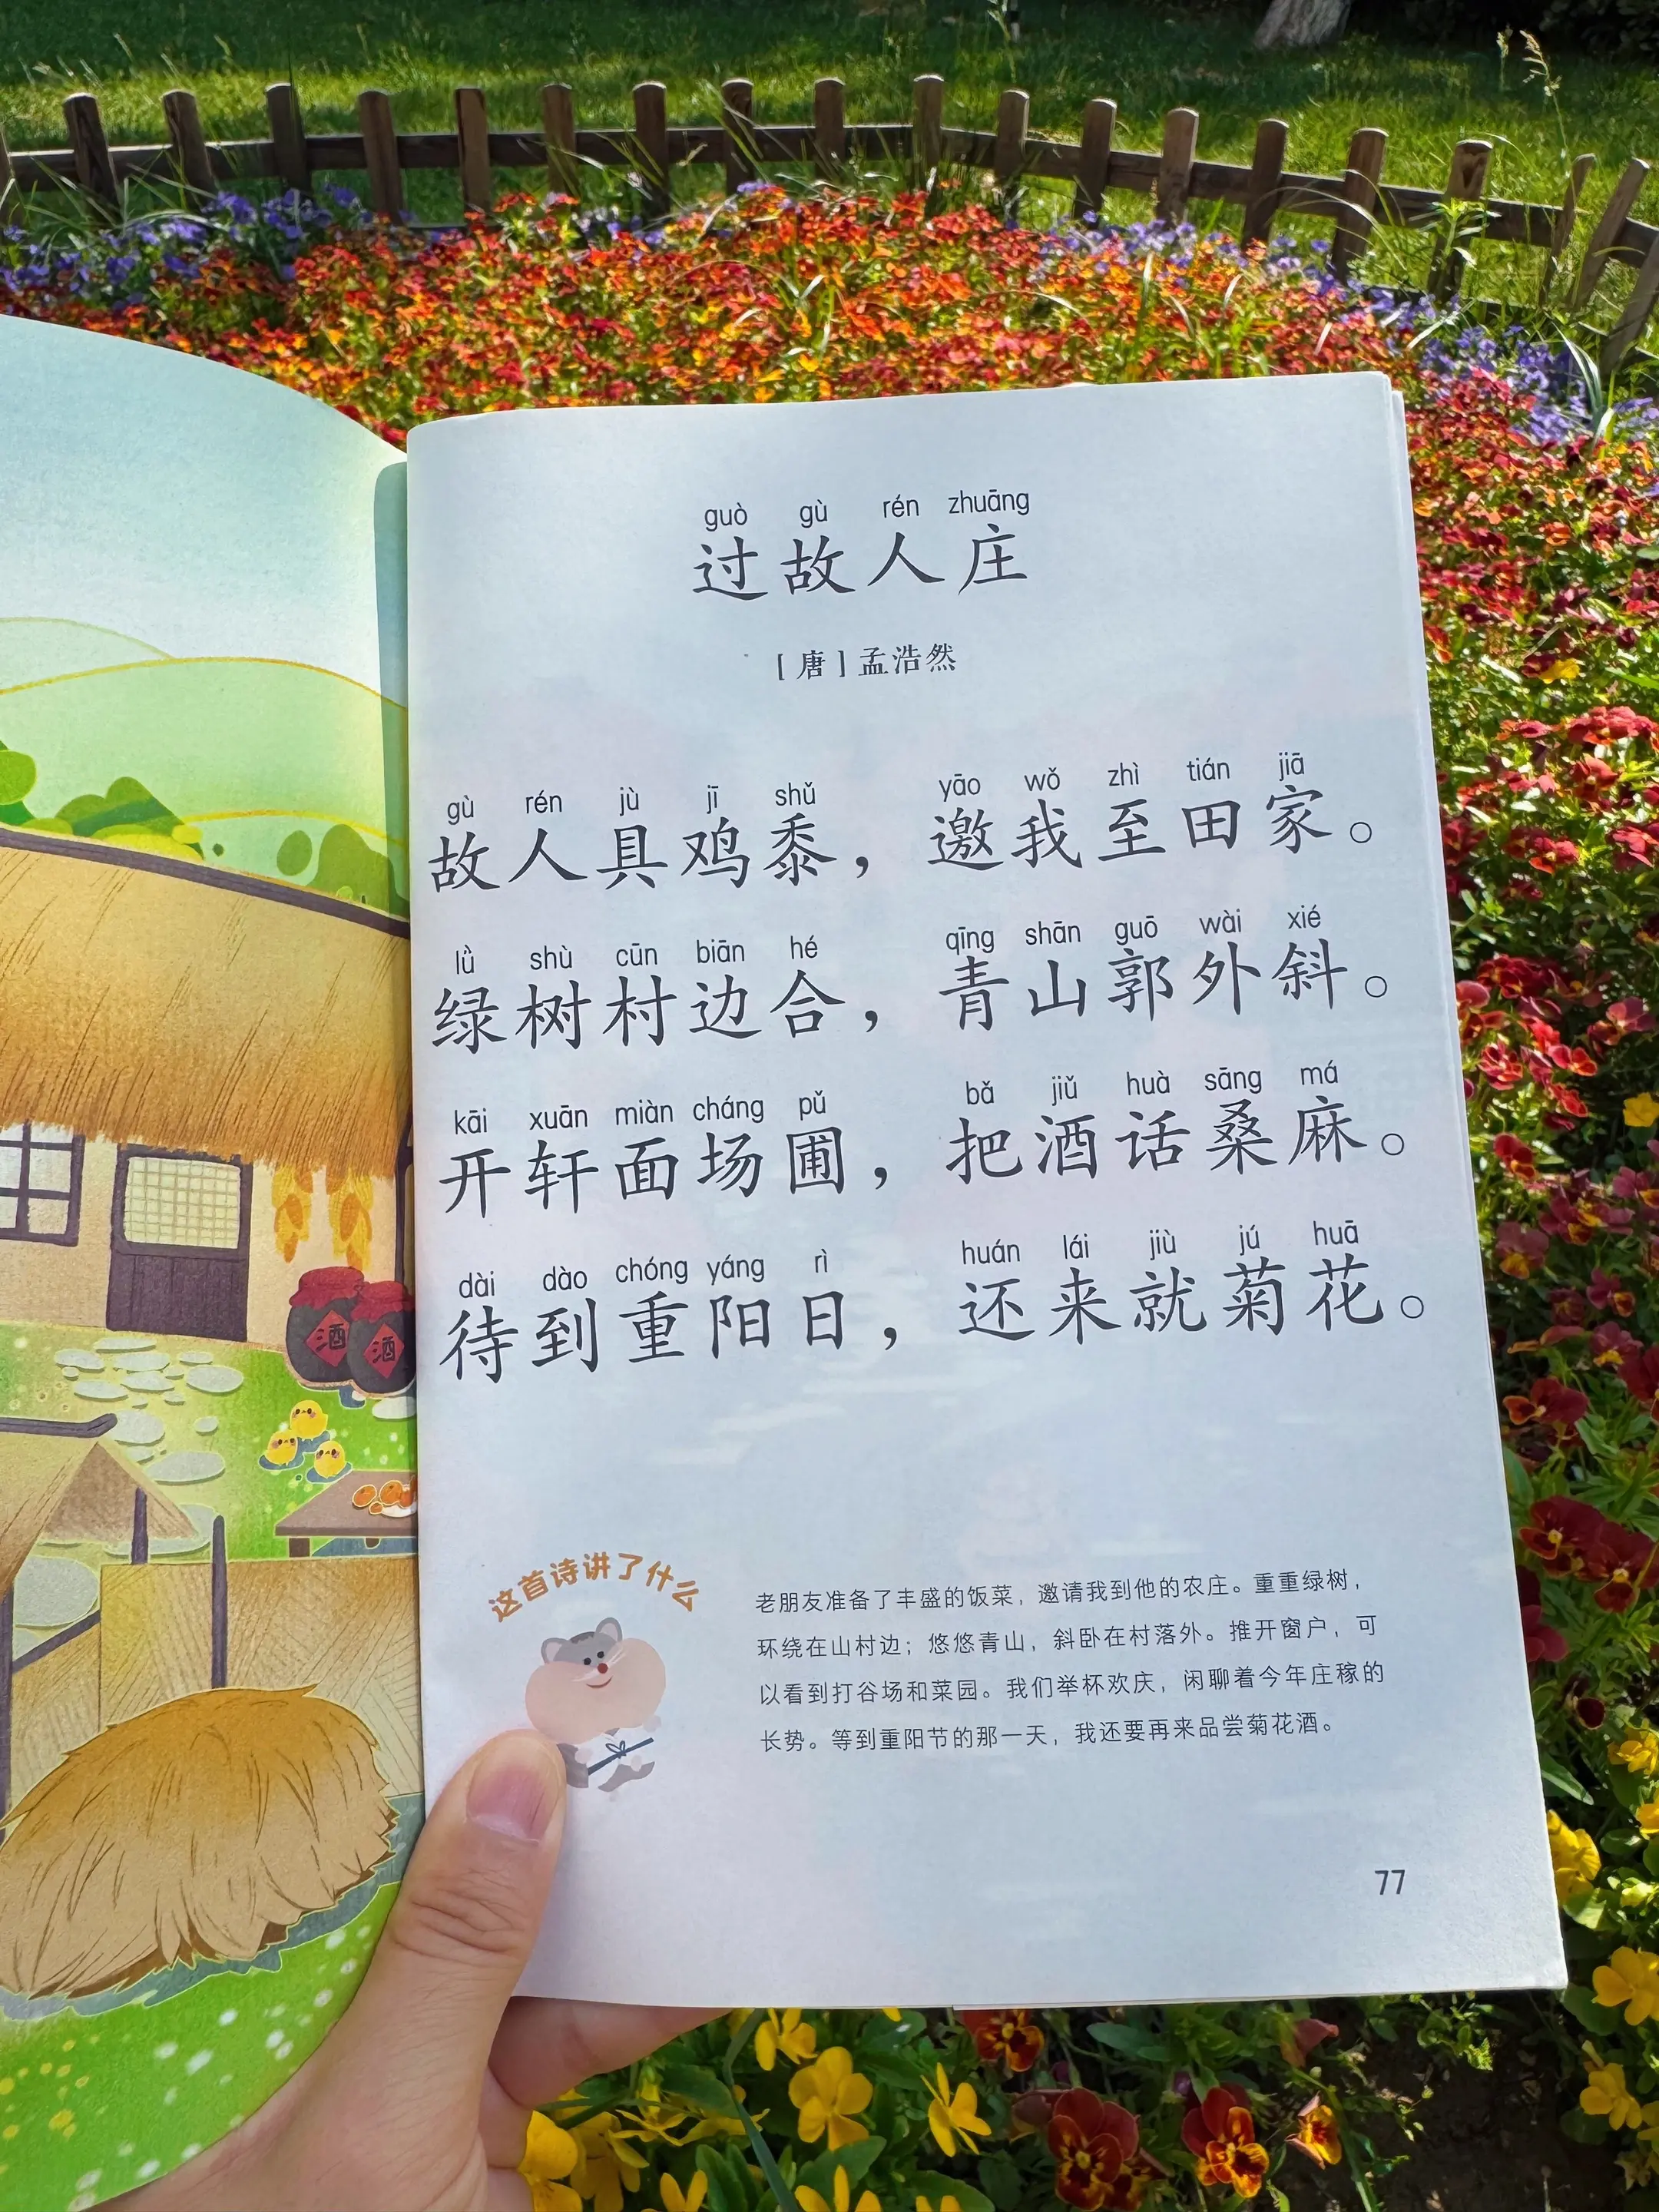 guò gù rén zhuāng
过故人庄
[唐]孟浩然
gù rén jù jī shǔ yāo wǒ zhì tián jiā
故人具鸡黍，邀我至田家。
lǜ shù cūn biān hé qīng shān guō wài xié
绿树村边合，青山郭外斜。
kāi xuān miàn cháng pǔ bǎ jiǔ huà sāng má
开轩面场圃，把酒话桑麻。
dài dào chóng yáng rì huán lái jiù jú huā
待到重阳日，还来就菊花。
酒 酒
这首诗讲了什么
老朋友准备了丰盛的饭菜，邀请我到他的农庄。重重绿树，
环绕在山村边；悠悠青山，斜卧在村落外。推开窗户，可
以看到打谷场和菜园。我们举杯欢庆，闲聊着今年庄稼的
长势。等到重阳节的那一天，我还要再来品尝菊花酒。
77